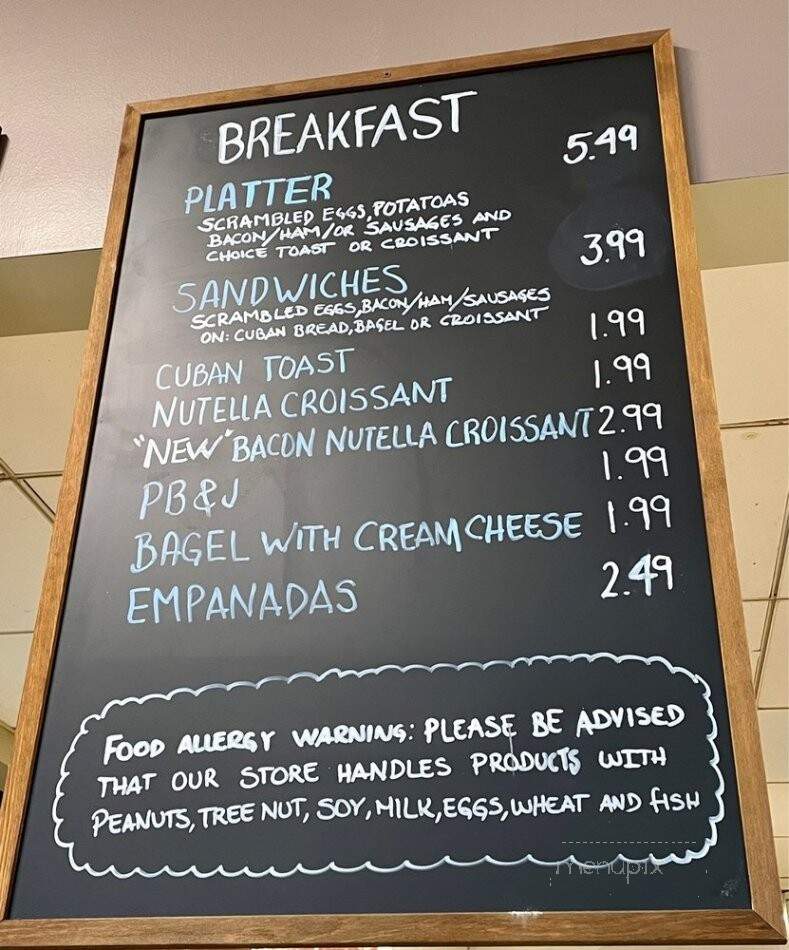 BREAKFAST
PLATTER 5.49
SCRAMBLED EGGS, POTATOAS
BACON/HAM/OR SAUSAGES AND
CHOICE TOAST OR CROISSANT
SANDWICHES 3.99
SCRAMBLED EGGS, BACON/HAM/SAUSAGES
ON: CUBAN BREAD, BAGEL OR CROISSANT
CUBAN TOAST 1.99
NUTELLA CROISSANT 1.99
"NEW" BACON NUTELLA CROISSANT 2.99
PB&J 1.99
BAGEL WITH CREAM CHEESE 1.99
EMPANADAS 2.49
FOOD ALLERGY WARNING: PLEASE BE ADVISED
THAT OUR STORE HANDLES PRODUCTS WITH
PEANUTS, TREE NUT, SOY, MILK, EGGS, WHEAT AND FISH
menupix